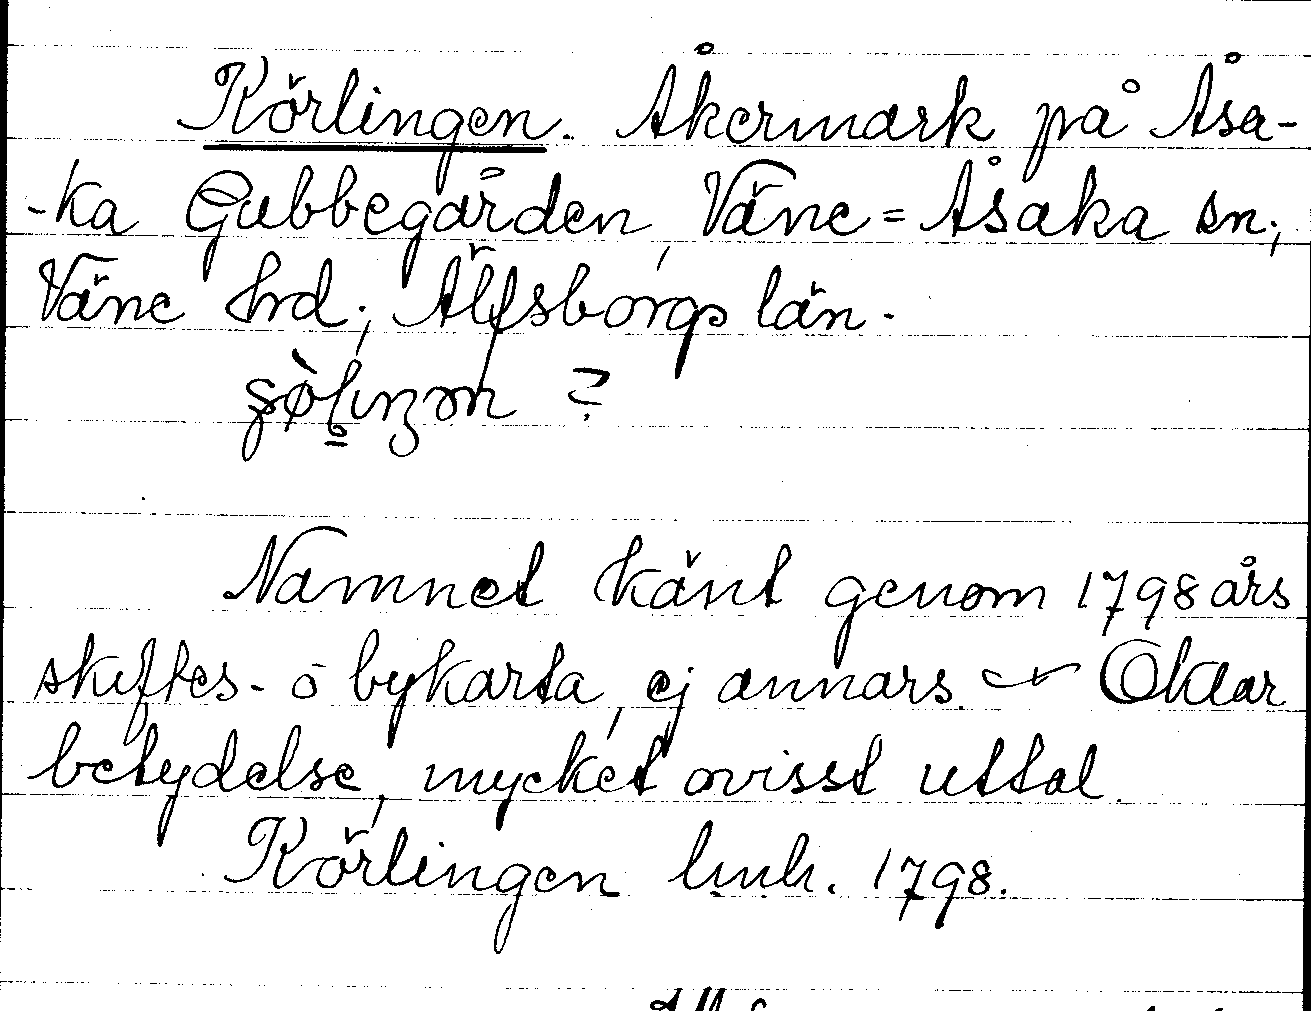 Körlingen. Åkermark på Åsa-
-ka Gubbegården, Väne=Åsaka sn.,
Väne hrd., Älfsborgs län.
?
Namnet känt genom 1798 års
skiftes- o bykarta, ej annars. Oklar
betydelse, mycket ovisst uttal.
Körlingen lmh. 1798.